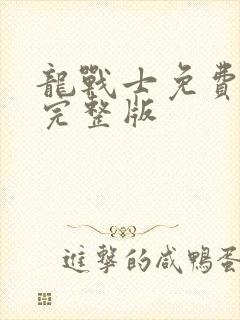 龍戰士免費
完整版
進擊的咸鴨蛋